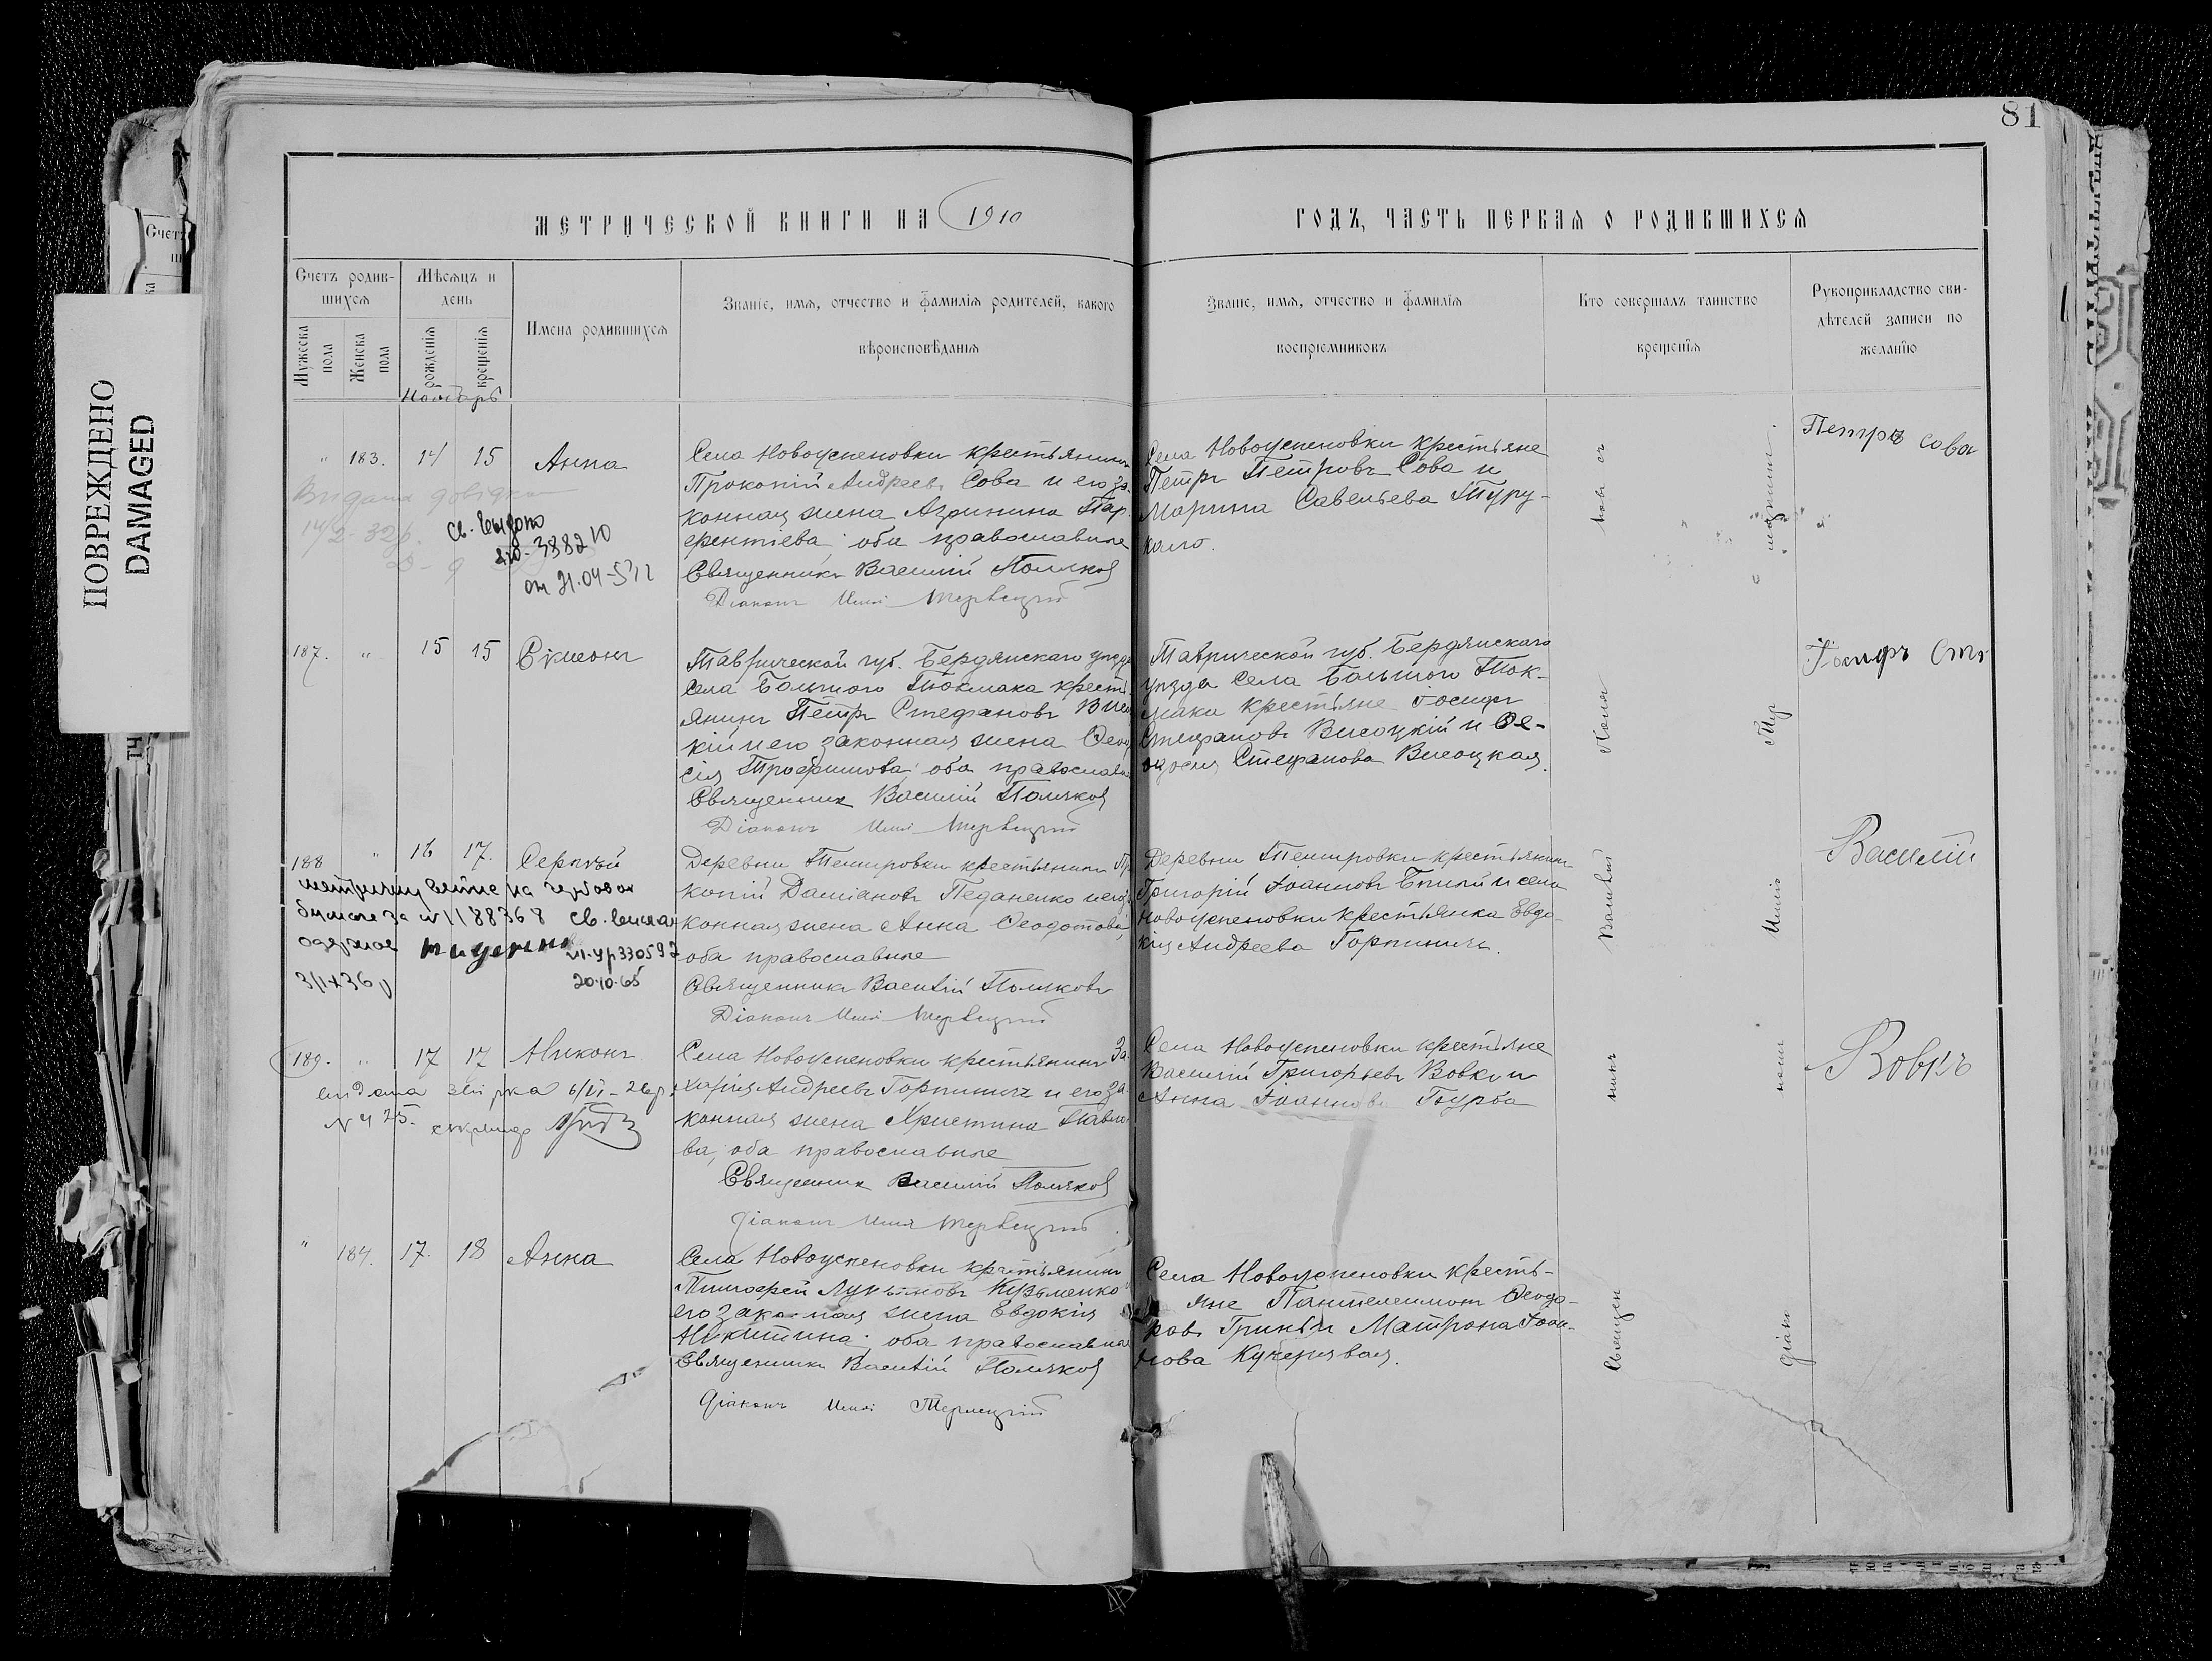 81
ПОВРЕЖДЕНО
DAMAGED
МЕТРИЧЕСКОЙ КНИГИ НА 1910
ГОДЪ, ЧАСТЬ ПЕРВАЯ О РОДИВШИХСЯ
Счетъ родив-
шихся
Мужеска пола
Женска пола
Мѣсяцъ и
день
рожденія
крещенія
Имена родившихся
Званіе, имя, отчество и фамилія родителей, какого
вѣроисповѣданія
Званіе, имя, отчество и фамилія
воспріемниковъ
Кто совершалъ таинство
крещенія
Рукоприкладство сви-
дѣтелей записи по
желанію
Ноябрь
" 183. 14 15 Анна
Села Новоуспеновки крестьянинъ
Прокопій Андреевъ Сова и его за-
конная жена Агрипина Пар-
фентіева; оба православные
Священникъ Василій Поляковъ
Діаконъ
Села Новоуспеновки крестьяне
Петръ Петровъ Сова и
Марина Савельева Туру-
кало.
Петръ Сова
Видана довідка
388210
187. " 15 15 Сѵмеонъ
Таврической губ. Бердянскаго уѣзда
села Большого Токмака крестъ-
янинъ Петръ Стефановъ Висоц
кій и его законная жена Ѳеодо
сія Трофимова; оба православные
Священникъ Василій Поляковъ
Діаконъ
Таврической губ. Бердянскаго
уѣзда села Большого Ток-
мака крестьяне Іосифъ
Стефановъ Висоцкій и Ѳе-
одосія Стефанова Висоцкая.
Іосифъ
188 " 16 17. Сергѣй
Деревни Темировки крестьянинъ Пр
копій Даміановъ Педаненко и его за
конная жена Анна Ѳеодотова;
оба православные
Священникъ Василій Поляковъ
Діаконъ
Деревни Темировки крестьянинъ
Григорій Іоанновъ Бѣлый и села
Новоуспеновки крестьянка Евдо-
кія Андреева Горпиничъ.
Василій
188368
330592
20.10.65
189. " 17 17 Никонъ
Села Новоуспеновки крестьянинъ За-
харія Андреевъ Горпиничъ и его за-
конная жена Христина Павло-
ва, оба православные
Священникъ Василій Поляковъ
Діаконъ
Села Новоуспеновки крестьяне
Василій Григорьевъ Вовкъ и
Анна Іоаннова Бурба
Вовкъ
N 425.
" 184. 17. 18 Анна
Села Новоуспеновки крестьянинъ
Тимофей Лукьяновъ Кузьменко
его законная жена Евдокія
Никитина; оба православные
Священникъ Василій Поляковъ
Діаконъ
Села Новоуспеновки кресть-
яне Пантелеимонъ Ѳеодо-
ровъ Гринь и Матрона Іоан-
нова Кучерявая.
Священ
никъ
Василій
Поля
ковъ съ
діако
номъ